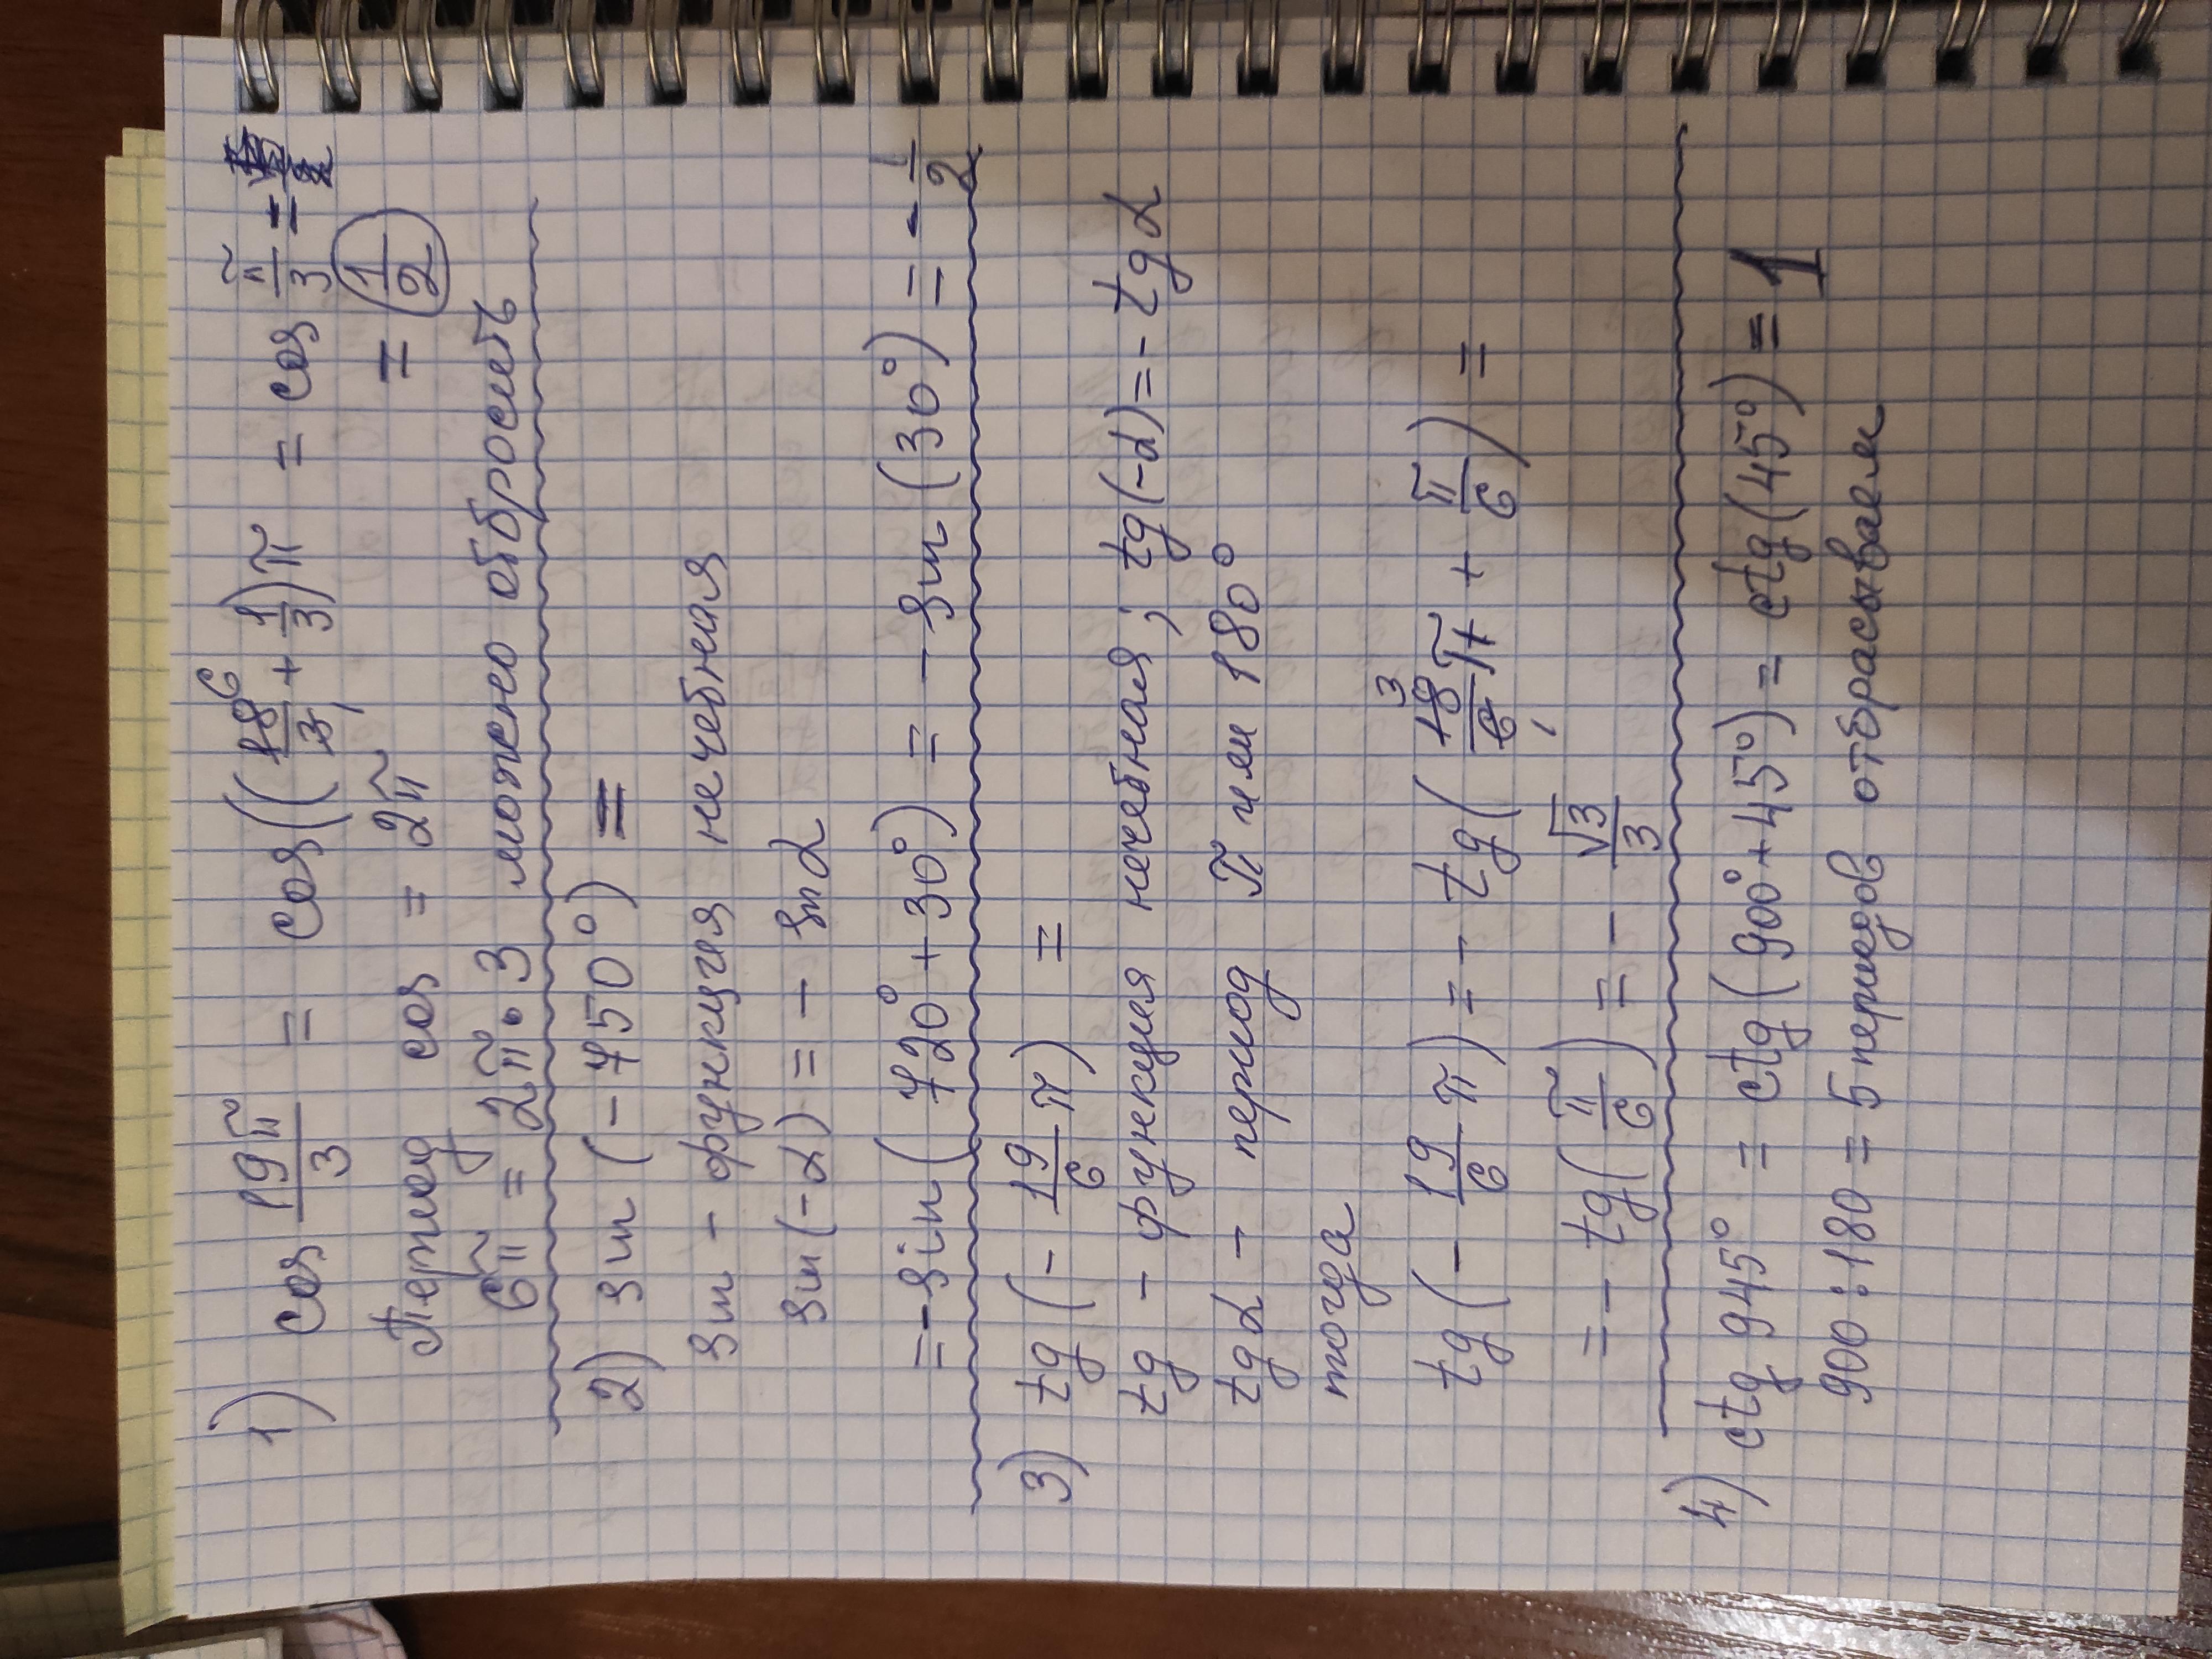 1) cos 19π/3 = cos((18/3 + 1/3)π = cos π/3 =
Период cos = 2π = 1/2
6π = 2π·3 можно отбросить
2) sin (-750°) =
sin - функция нечебная
sin(-α) = - sinα
=-sin(720°+30°) = - sin(30°) = - 1/2
3) tg(- 19/6 π) =
tg - функция нечебная; tg(-α)=-tgα
tgα - период π или 180°
тогда
tg(- 19/6 π) = - tg(18/6 π + π/6) =
= - tg(π/6) = - √3/3
4) ctg 945° = ctg(900°+45°) = ctg(45°) = 1
900:180 = 5 периодов отбрасываем